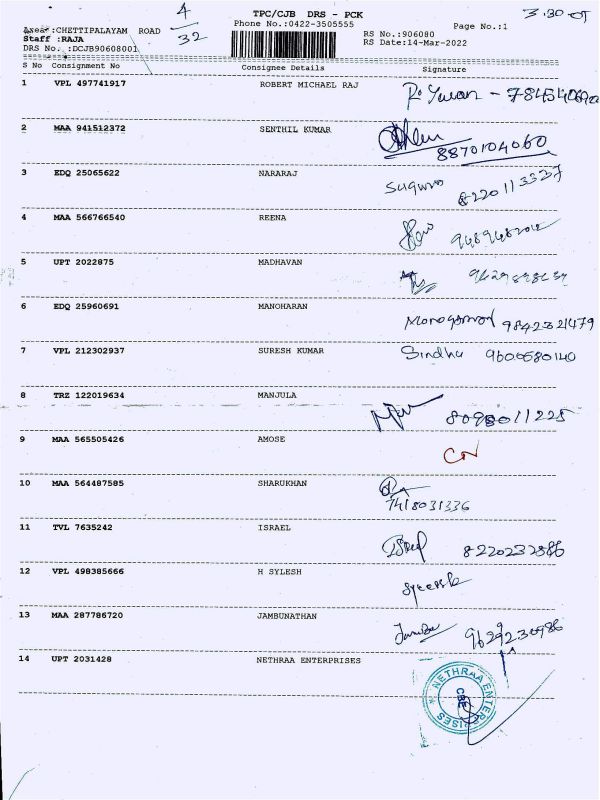 4
32
TPC/CJB DRS - PCK
Phone No.:0422-3505555
Page No.:1
3.30
Area :CHETTIPALAYAM ROAD
Staff :RAJA
DRS No. :DCJB90608001
RS No.:906080
RS Date:14-Mar-2022
S No Consignment No Consignee Details Signature
1 VPL 497741917 ROBERT MICHAEL RAJ
2 MAA 941512372 SENTHIL KUMAR
8870104060
3 EDQ 25065622 NARARAJ
8220113337
4 MAA 566766540 REENA
5 UPT 2022875 MADHAVAN
6 EDQ 25960691 MANOHARAN
9842321479
7 VPL 212302937 SURESH KUMAR Sindhu 9600580140
8 TRZ 122019634 MANJULA
8098011225
9 MAA 565505426 AMOSE
10 MAA 564487585 SHARUKHAN
7418031336
11 TVL 7635242 ISRAEL
12 VPL 498385666 H SYLESH
13 MAA 287786720 JAMBUNATHAN
14 UPT 2031428 NETHRAA ENTERPRISES
NETHRAA ENTERPRISES
CBE